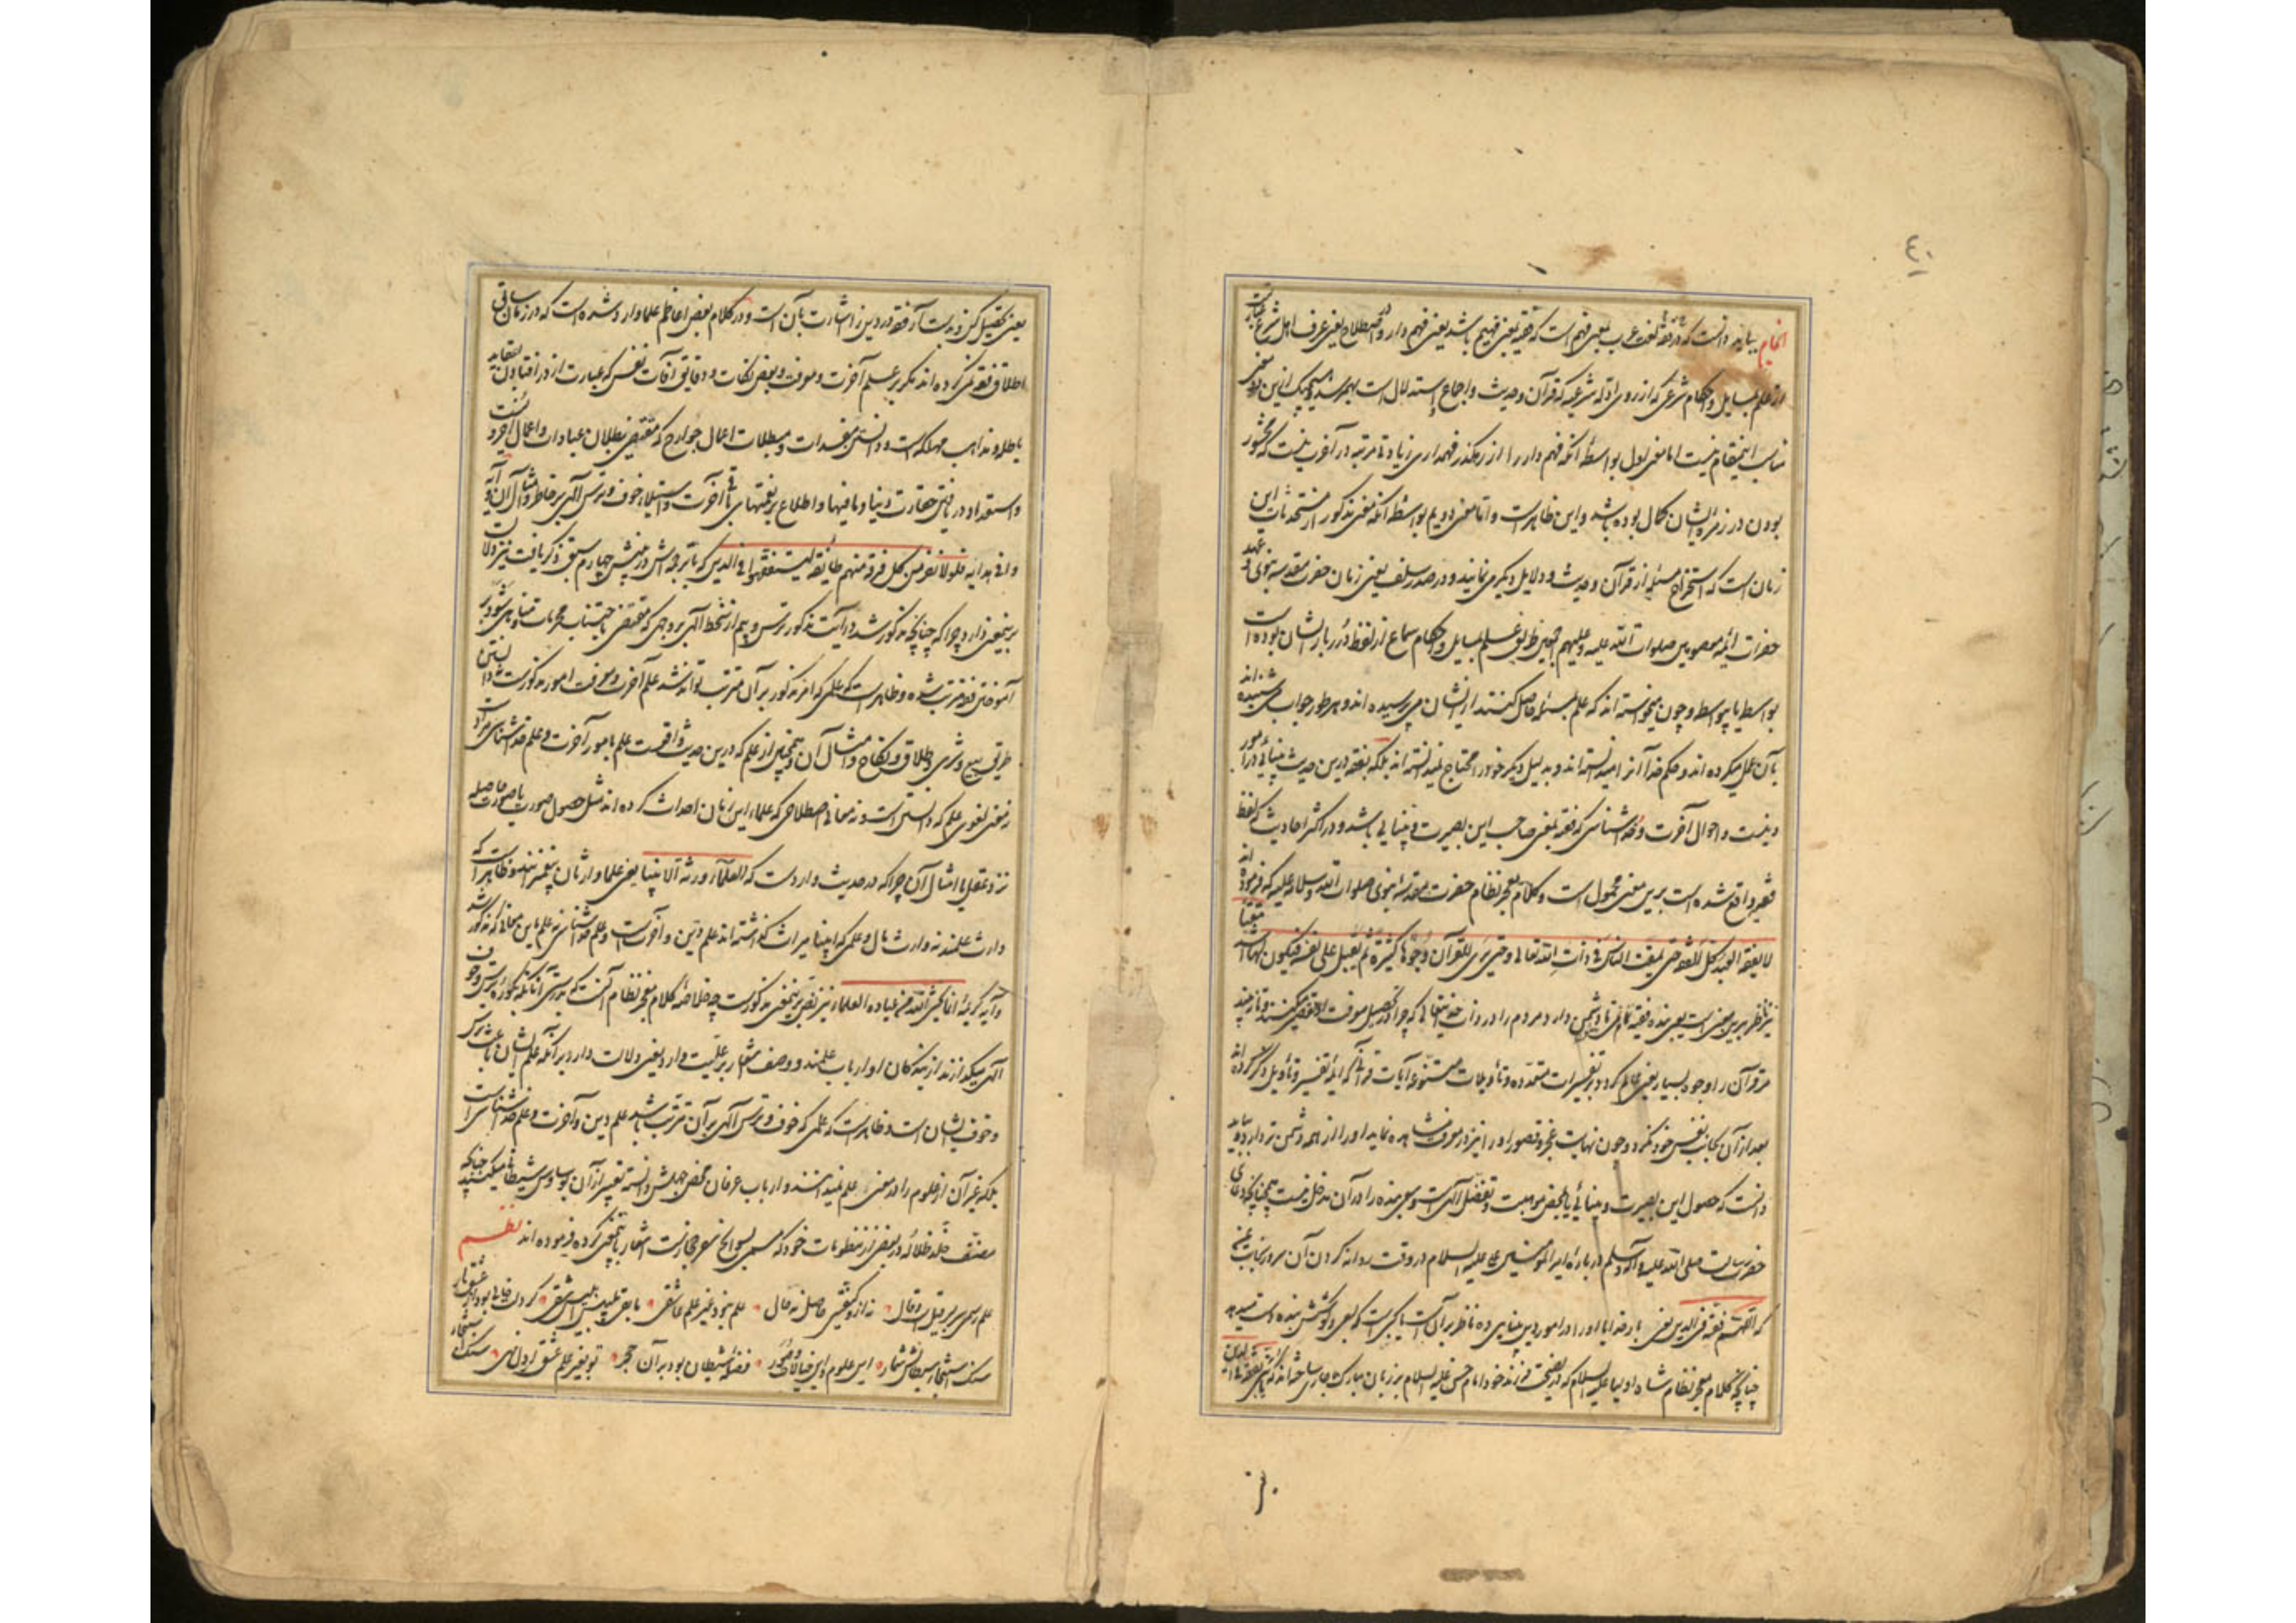 ٤٠
بباید دانست که فقه در لغت عرب بمعنی فهم است که فقیه بمعنی فهیم باشد یعنی فهم دار و در اصطلاح یعنی عرف اهل شرع
از علم بمسایل و احکام شرعی که از روی ادله شرعیه که قرآن و حدیث و اجماع و استدلال است بهم رسد و هیچیک ازین دو معنی
مناسب اینمقام نیست اما معنی اول بواسطه آنکه فهم دار را از رهگذر فهم داری زیادتی مرتبه در آخرت نیست که محشور
بودن در زمره ایشان کمال بوده باشد و این ظاهر است و اما معنی دویم بواسطه آنکه معنی مذکور از مستحدثات این
زمان است که استخراج مسئله از قرآن و حدیث و دلایل دیگر می نمایند و در صدر سلف یعنی زمان حضرت مقدسه نبوی و عهد
حضرات ائمه معصومین صلوات الله علیه و علیهم اجمعین طریق علم بمسایل و احکام سماع از لفظ درر بار ایشان بوده است
بواسطه یا بیواسطه و چون میخواسته اند که علم بمسئله حاصل کنند از ایشان می پرسیده اند و بهر طور جواب می شنیده اند
بآن عمل میکرده اند و حکم خدا آنرا میدانسته اند و بدلیل دیگر خود را محتاج نمیدانسته اند بلکه فقه درین حدیث بینائی در امور
دینست و احوال آخرت و خدا شناسی که فقیه بمعنی صاحب این بصیرت و بینائی باشد و در اکثر احادیث که لفظ
فقیه واقع شده است برین معنی محمول است و کلام معجز نظام حضرت مقدسه نبوی صلوات الله و سلامه علیه که فرموده اند
لا یفقه العبد کل الفقه حتی یمقت الناس فی ذات الله تعالی و حتی یری للقرآن وجوها کثیرة ثم یقبل علی نفسه فیکون لها اشد مقتا
نیز ناظر برین معنی است یعنی بنده فقیه کامل نیست تا دشمن دارد مردم را در ذات حقتعالی که چرا در تحصیل معرفت او تقصیر میکنند و تا نه بیند
مر قرآن را وجوه بسیار یعنی عالم گردد بر تفسیرات متعدده و تأویلات متنوعه آیات قرآنی که ائمه تفسیر و تأویل ذکر کرده اند
بعد از آن بجانب نفس خود نگرد و چون نهایت عجز و قصور او را نیز در معرفت مشاهده نماید او را از همه دشمن تر دارد و بباید
دانست که حصول این بصیرت و بینائی یا بمحض موهبت و تفضل الهی است و سعی بنده را در آن مدخل نیست همچنانکه دعای
حضرت رسالت صلی الله علیه و آله و سلم در باره امیر المؤمنین علی علیه السلام در وقت روانه کردن آن سرور بجانب یمن
که اللهم فقهه فی الدین یعنی بار خدایا او را در امور دین بینائی ده ناظر بر آن است یا کسبی است که بسعی و کوشش بنده دست میدهد
چنانچه کلام معجز نظام شاه اولیا علیه السلام که در نصیحت فرزند خود امام حسن علیه السلام بر زبان مبارک جاری ساخته اند که و تفقه یا بنی فی الدین
یعنی تحصیل کن و بدست آر فقه در دین را اشارت بآن است و در کلام بعض اعاظم علما وارد شده است که در زمان سابق
اطلاق فقه نمی کرده اند مگر بر علم آخرت و معرفت بعض نکات و دقایق آفات نفس که عبارت از در افتادن بعقاید
باطله و مذاهب مهلکه است و دانستن مفسدات و مبطلات اعمال جوارح که مقتضی بطلان عبادات و اعمال اخرویست
و استعداد دریافتن حقارت دنیا و مافیها و اطلاع بر نعمتهای باقی آخرت و استیلاء خوف و ترس الهی بر خاطر و امثال آن و آیه
وافی هدایه فلولا نفر من کل فرقة منهم طائفة لیتفقهوا فی الدین که ترجمه اش در پیش چهارم سبق ذکر یافت نیز دلالت
برینمعنی دارد چرا که چنانچه مذکور شد در آیت مذکور ترس و بیم از سخط الهی بر وجهی که مقتضی اجتناب محرمات و مناهی شود بر
آموختن فقه مترتب شده و ظاهر است که علمی که امر مذکور بر آن مترتب تواند شد علم آخرت و معرفت امور مذکور است نه دانستن
طریق بیع و شری و طلاق و نکاح و امثال آن و همچنین از علم که درین حدیث واقعست علم بامور آخرت و علم خدا شناسی مراد است
نه معنی لغوی علم که دانستن است و نه معانی اصطلاحی که علماء این زمان احداث کرده اند مثل حصول صورت یا صورت حاصله
نزد عقل یا امثال آن چرا که در حدیث وارد است که العلماء ورثة الانبیا یعنی علما وارثان پیغمبرانند و ظاهر است که
وارث علمند نه وارث مال و علمی که انبیا میراث گذاشته اند علم دین و آخرتست و علم خدا شناسی نه علم باین معانی که مذکور شد
و آیه کریمه انما یخشی الله من عباده العلماء نیز نص برینمعنی مذکور است چه خلاصه کلام معجز نظام آنست که بدرستی آنانکه بخود راه ترس و خوف
الهی میکدازند از بندگان او ارباب علمند و وصف مشعار بر علیت دارد یعنی دلالت دارد بر آنکه علم ایشان باعث ترس
و خوف ایشان است و ظاهر است که علمی که خوف و ترس الهی بر آن مترتب باشد علم دین و آخرت و علم خدا شناسی است
بلکه غیر آن از علوم را در معنی علم نمیدانند و ارباب عرفان محض جهلش دانسته تعبیر از آن بوساوس شیطانی میکنند چنانکه
مصنف خلد ظلاله در بعضی از منظومات خود که مسمی بسوانح سفر حجاز است اشعار باینمعنی کرده فرموده اند نظم
علم رسمی سر بسر قیل است و قال • نه از و کیفیتی حاصل نه حال • علم نبود غیر علم عاشقی • مابقی تلبیس ابلیس شقی
سنگ استنجاء شیطانش شمار • این علوم و این خیالات و صور • فضله شیطان بود بر آن حجر • تو بغیر علم عشق ار دل نهی •